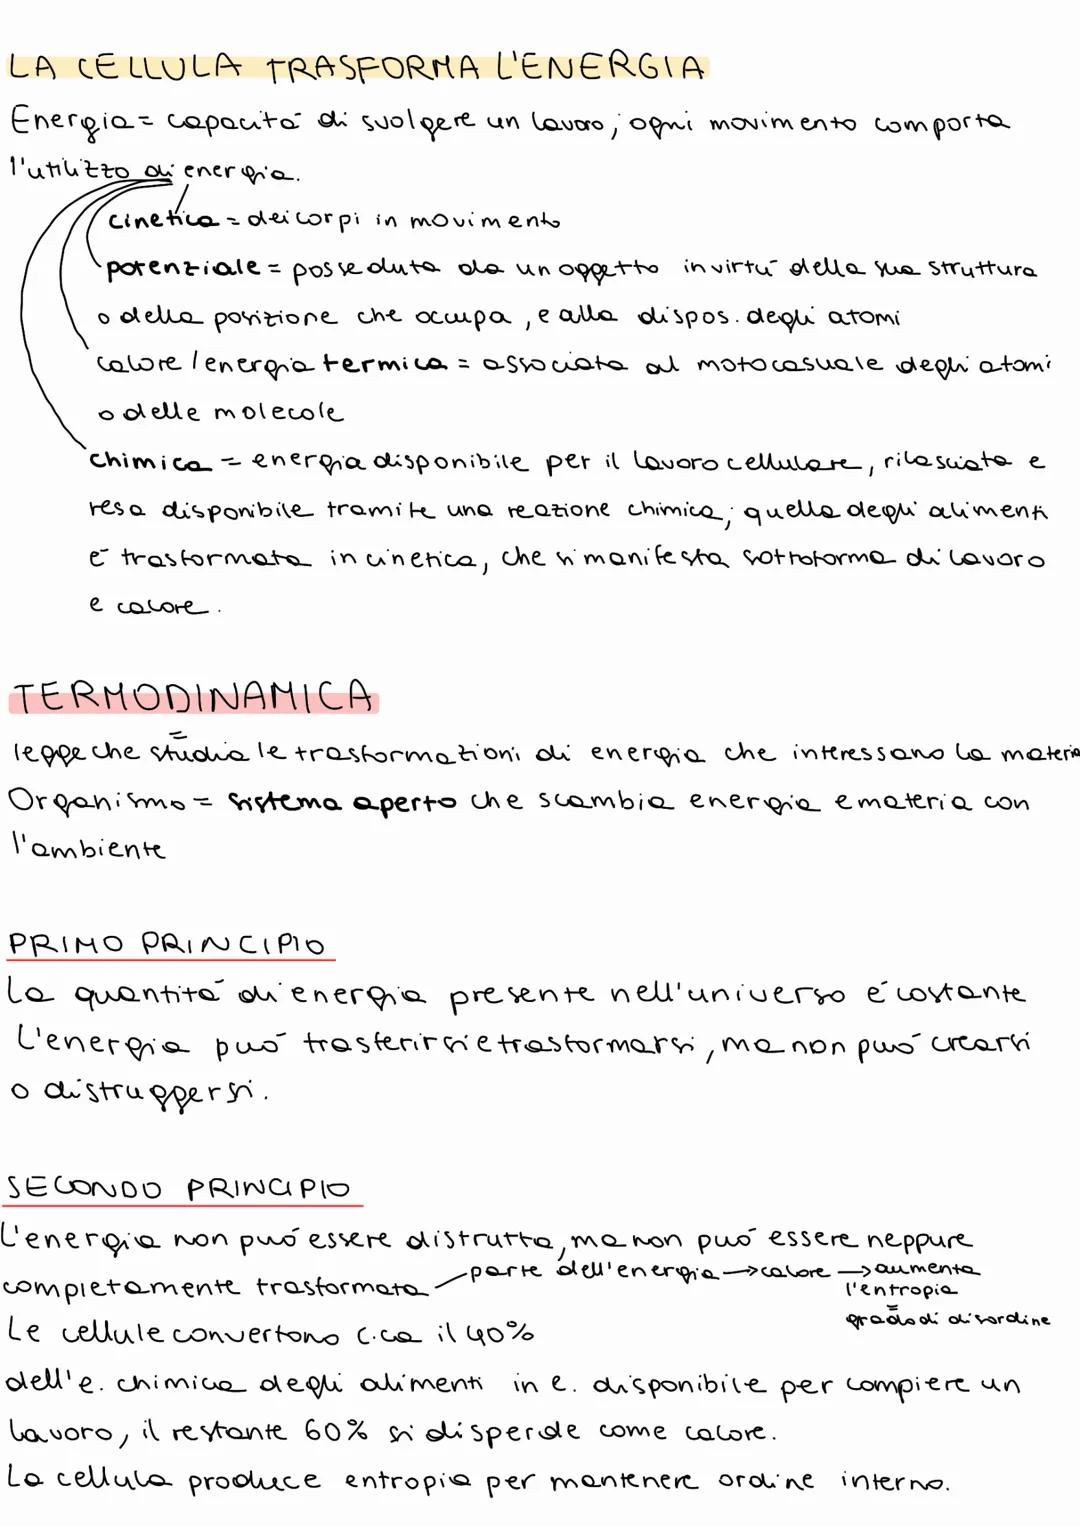 LA CELLULA TRASFORMA L'ENERGIA
Energia = capacità di svolgere un lavoro; ogni movimento comporta
l'utilizzo di energia.
cinetica = dei corpi in movimento
potenziale = posseduta da un oggetto in virtù della sua struttura
o della posizione che occupa, e alla dispos. degli atomi
calore / energia termica = associata al moto casuale degli atomi
o delle molecole
chimica = energia disponibile per il lavoro cellulare, rilasciata e
resa disponibile tramite una reazione chimica; quella degli alimenti
è trasformata in cinetica, che si manifesta sottoforma di lavoro
e calore.
TERMODINAMICA
=
legge che studia le trasformazioni di energia che interessano la materia
Organismo = sistema aperto che scambia energia e materia con
l'ambiente
PRIMO PRINCIPIO
La quantità di energia presente nell'universo è costante
L'energia può trasferirsi e trasformarsi, ma non può crearsi
o distruggersi.
SECONDO PRINCIPIO
L'energia non può essere distrutta, ma non può essere neppure
completamente trasformata — parte dell'energia → calore → aumenta
l'entropia
=
grado di disordine
Le cellule convertono c.ca il 40%
dell'e. chimica degli alimenti in e. disponibile per compiere un
lavoro, il restante 60% si disperde come calore.
La cellula produce entropia per mantenere ordine interno.